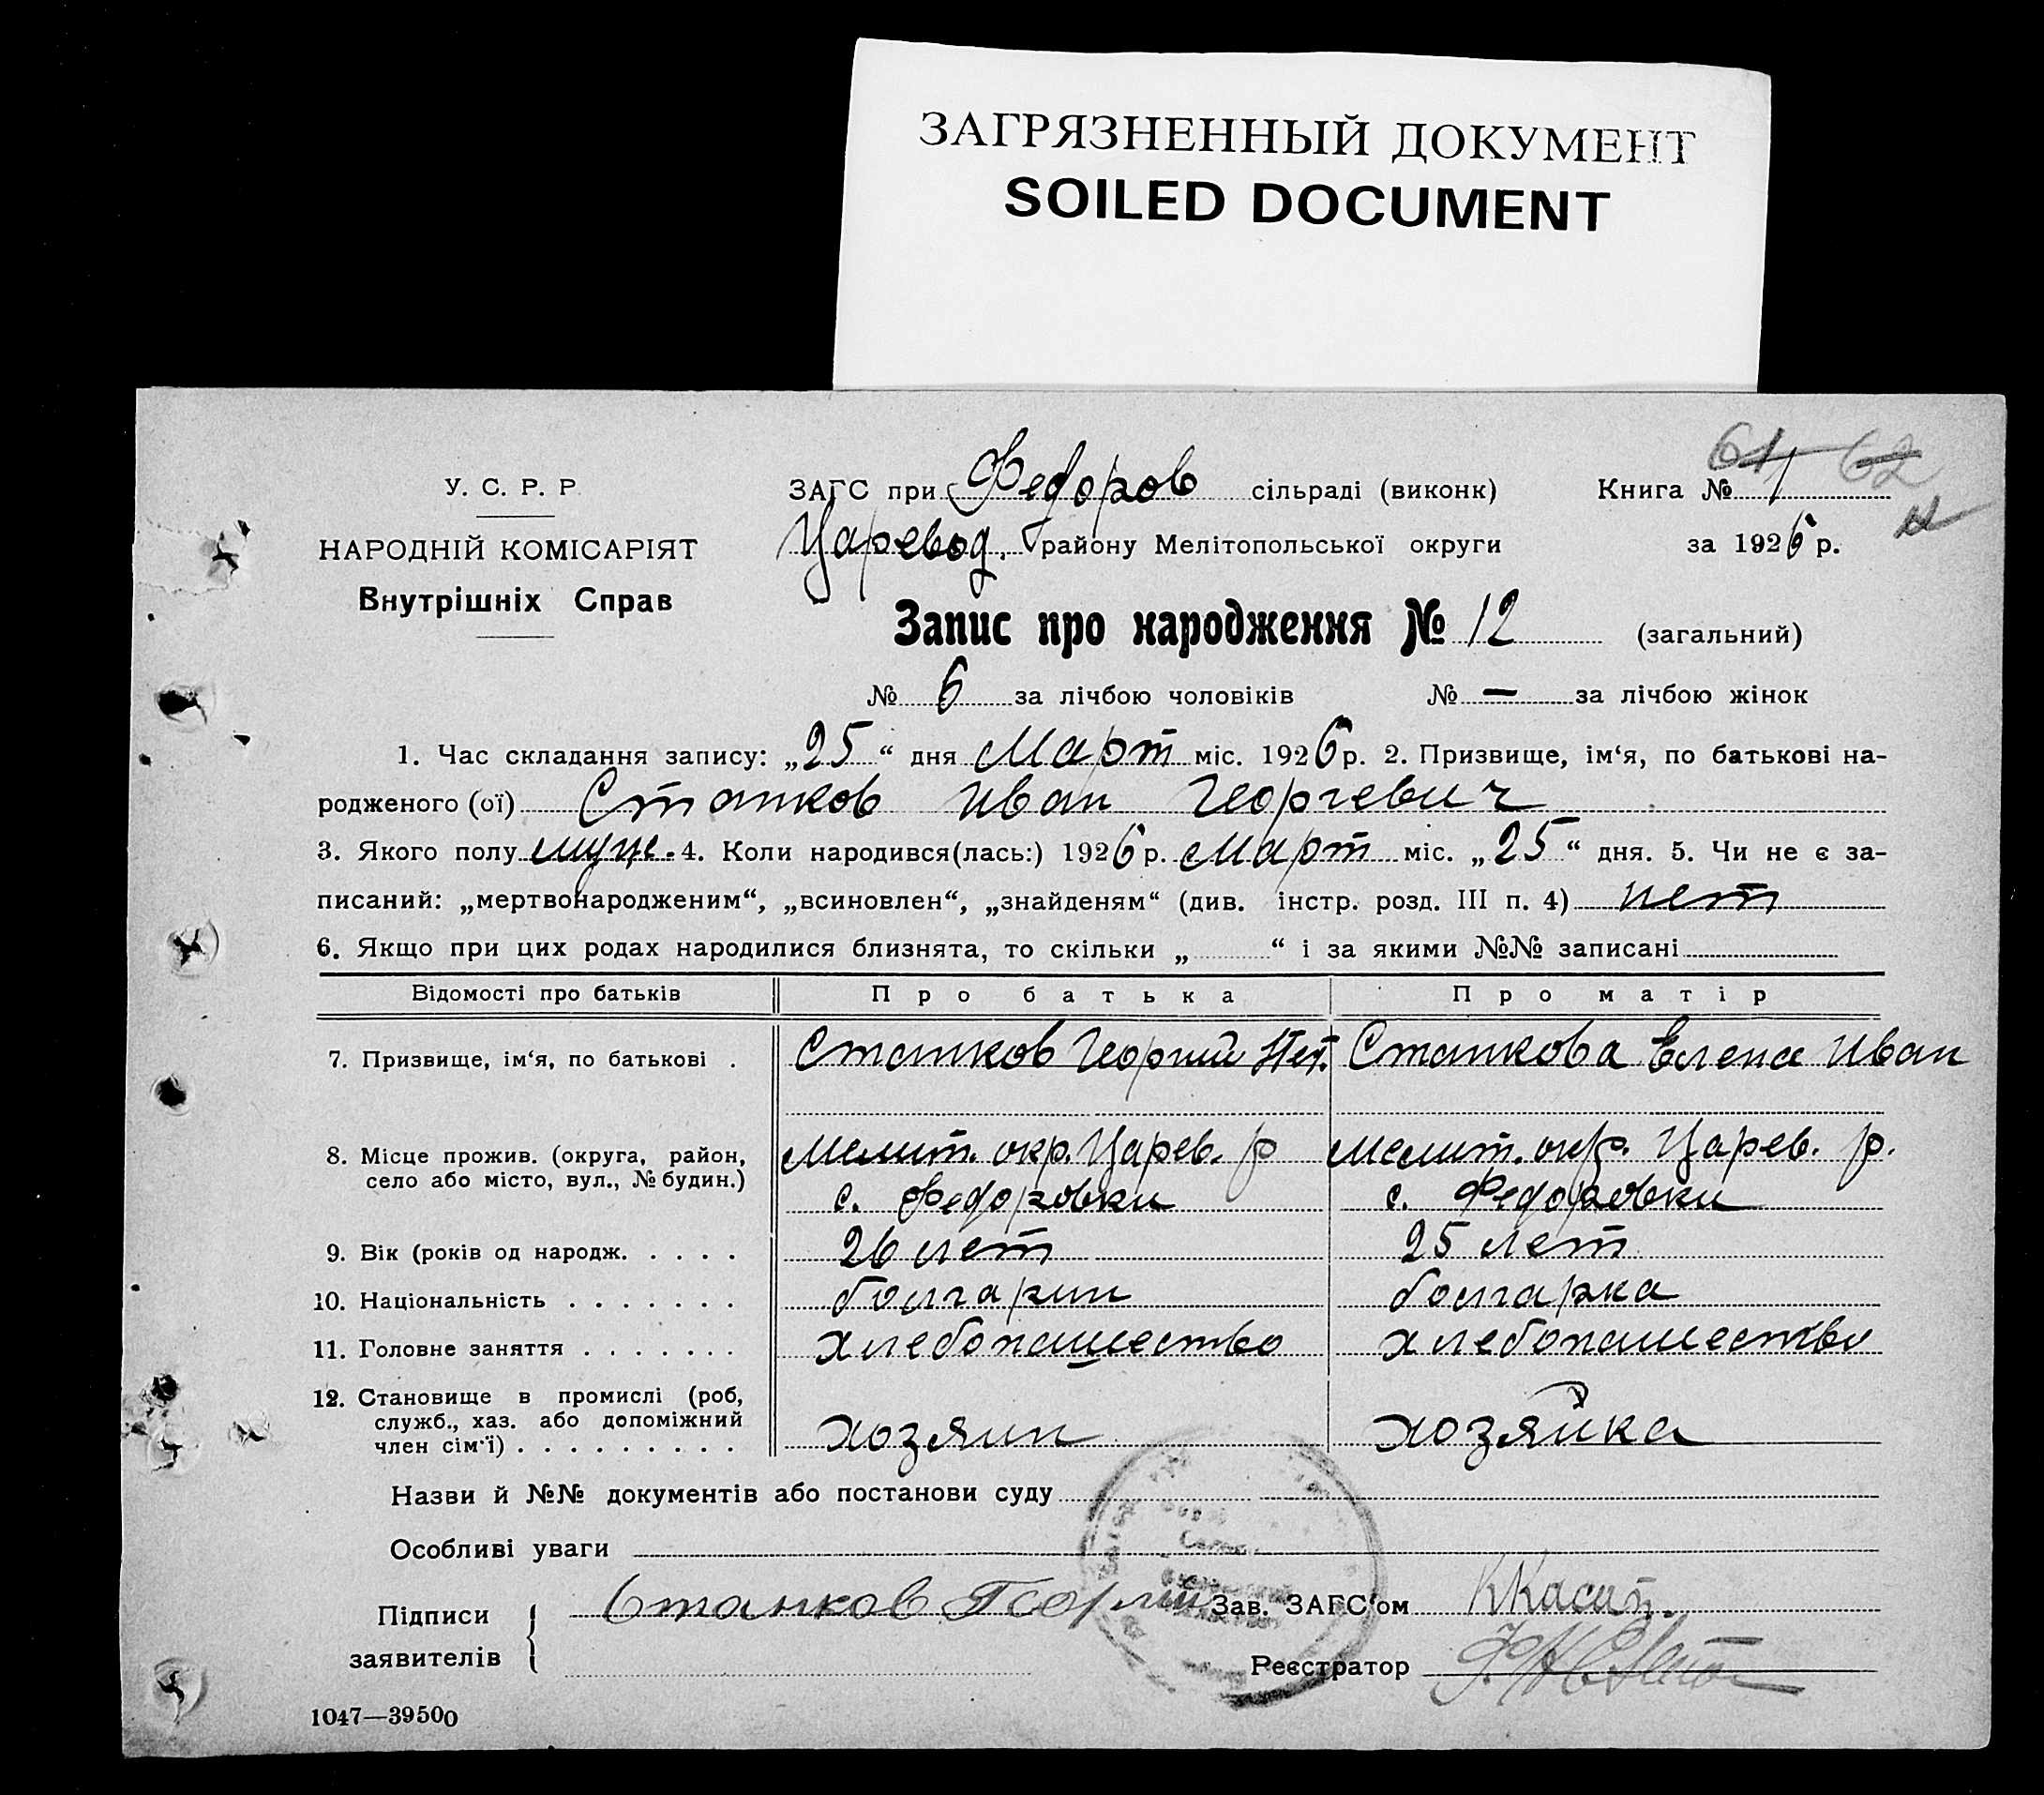 ЗАГРЯЗНЕННЫЙ ДОКУМЕНТ
SOILED DOCUMENT
61 62
У. С. Р. Р
НАРОДНІЙ КОМІСАРІЯТ
Внутрішніх Справ
ЗАГС при Федоров сільраді (виконк) Книга № 1
Царевод. району Мелітопольської округи за 1926 р.
Запис про народження № 12 (загальний)
№ 6 за лічбою чоловіків № — за лічбою жінок
1. Час складання запису: „25“ дня Март міс. 1926 р. 2. Призвище, ім‘я, по батькові на-
родженого (ої) Станков Иван Георгевич
3. Якого полу муже. 4. Коли народився(лась:) 1926 р. Март міс. „25“ дня. 5. Чи не є за-
писаний: „мертвонародженим“, „всиновлен“, „знайденям“ (див. інстр. розд. III п. 4) нет
6. Якщо при цих родах народилися близнята, то скільки „ “ і за якими №№ записані
Відомості про батьків Про батька Про матір
7. Призвище, ім‘я, по батькові . Станков Георгий Пет. Станкова Елена Иван
8. Місце прожив. (округа, район, Мелит. окр. Царев. р Мелит. окр. Царев. р.
село або місто, вул., № будин.) с. Федоровки с. Федоровки
9. Вік (років од народж. . . . . 26 лет 25 лет
10. Національність . . . . . . . болгарин болгарка
11. Головне заняття . . . . . . . хлебопашество хлебопашество
12. Становище в промислі (роб,
служб., хаз. або допоміжний
член сім‘ї) . . . . . . . . . хозяин хозяйка
Назви й №№ документів або постанови суду
Особливі уваги
Підписи Станков Георгий Зав. ЗАГС‘ом
заявителів Реєстратор
1047—39500